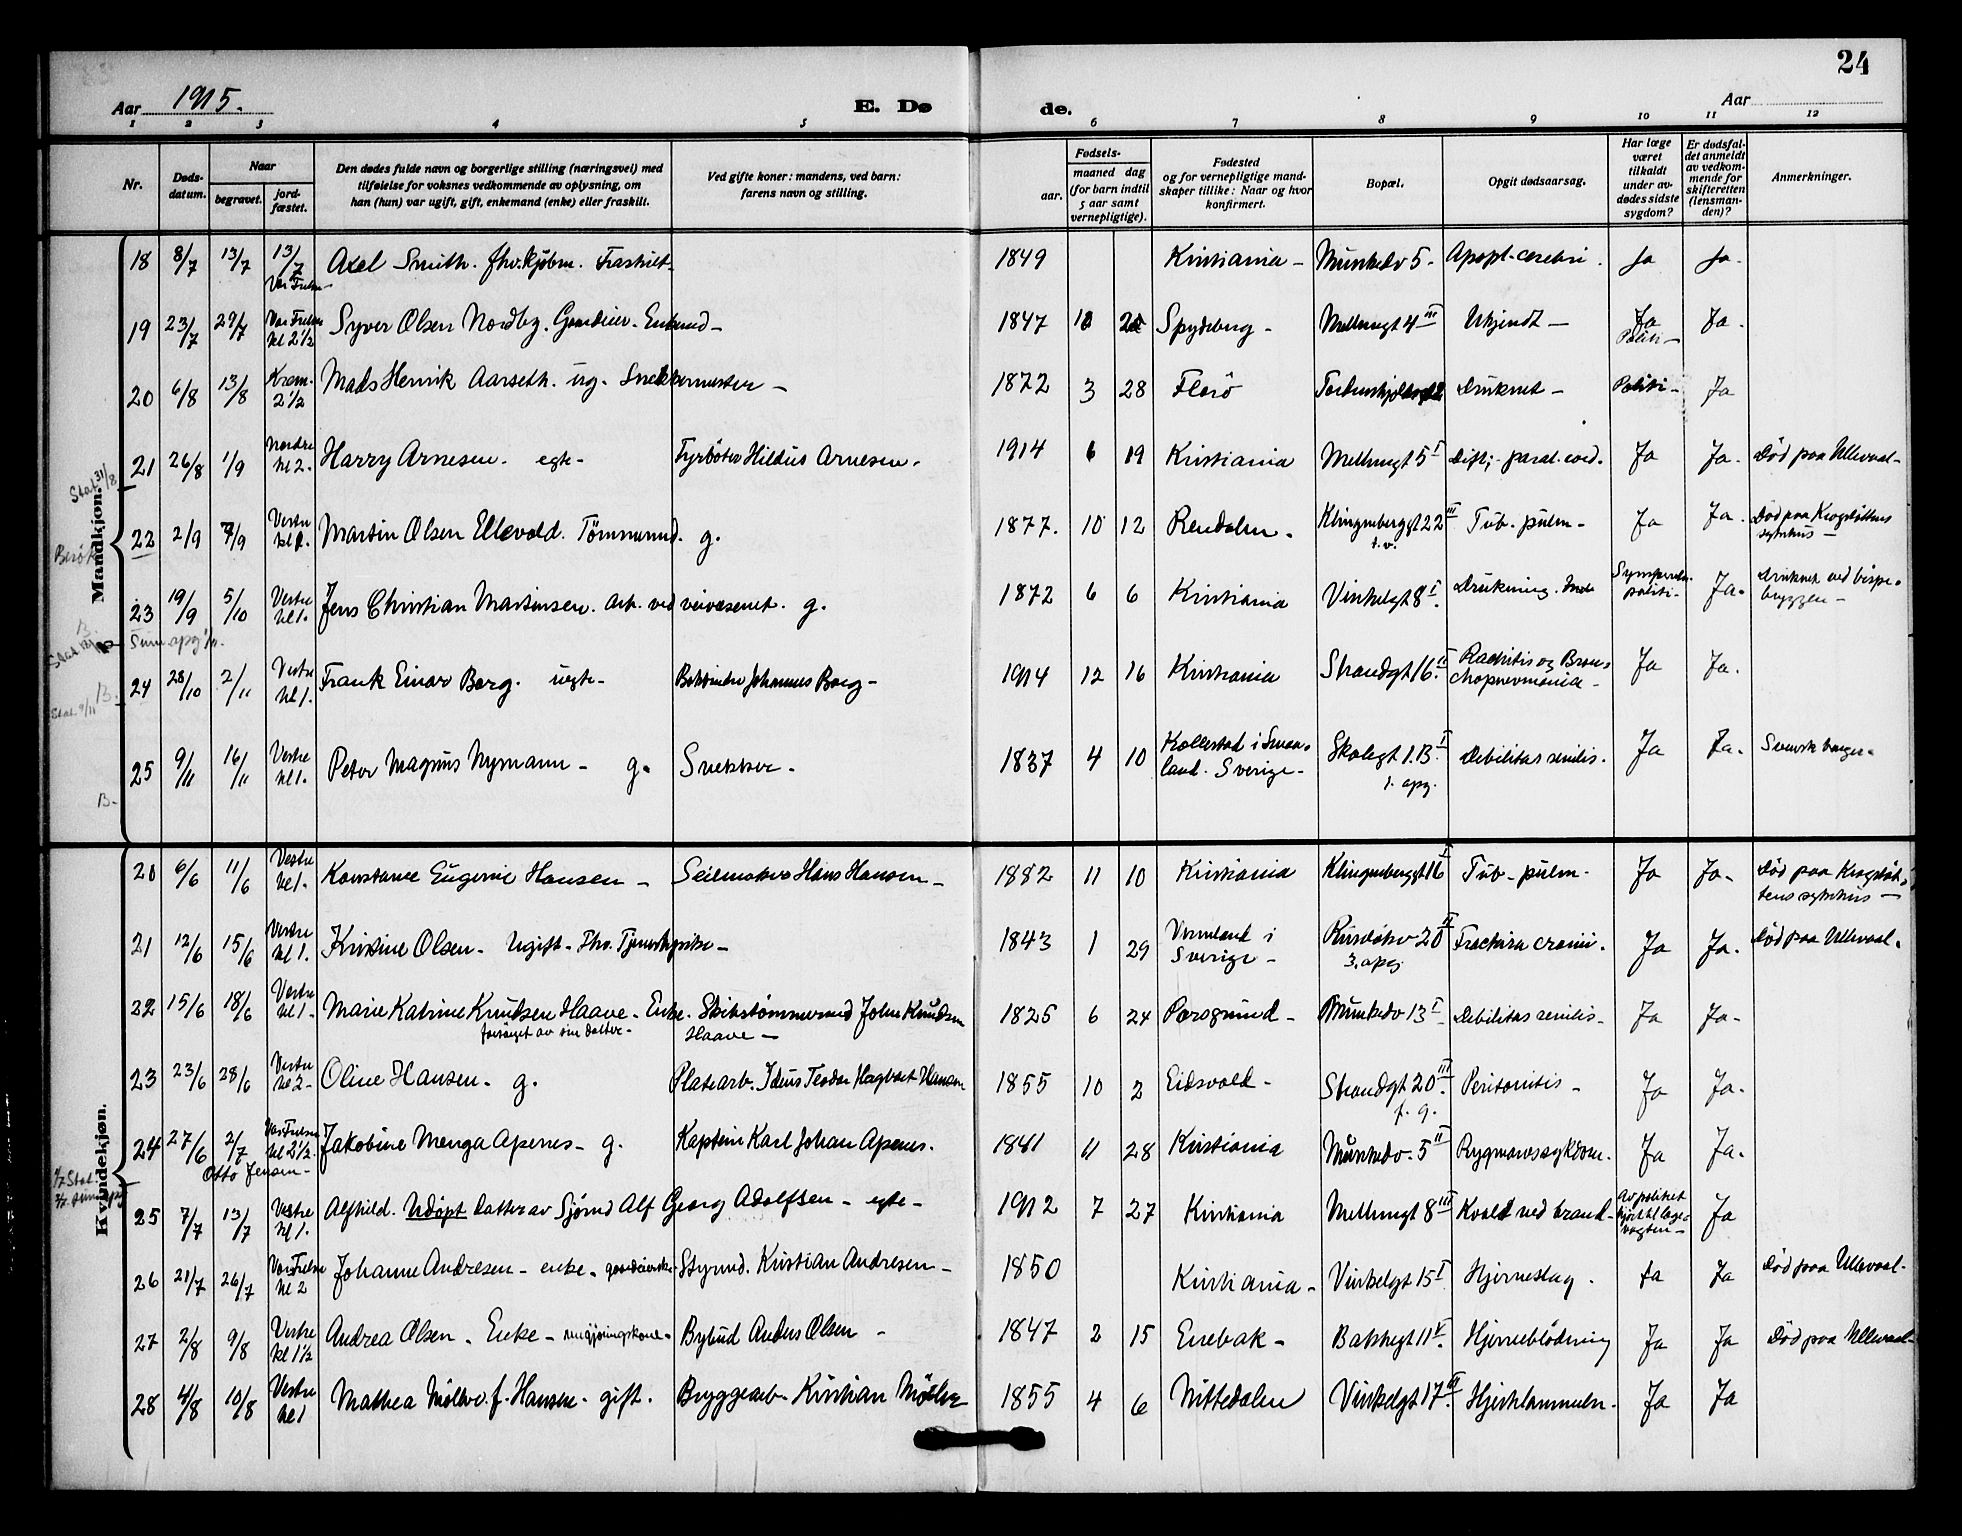 24
Aar 1915.
E. Dø
de.
Aar
1 2 3 4 5 6 7 8 9 10 11 12
Nr.
Døds-
datum.
Naar
begravet.
jord-
fæstet.
Den dødes fulde navn og borgerlige stilling (næringsvei) med
tilføielse for voksnes vedkommende av oplysning, om
han (hun) var ugift, gift, enkemand (enke) eller fraskilt.
Ved gifte koner: mandens, ved barn:
farens navn og stilling.
Fødsels-
aar.
maaned dag
(for barn indtil
5 aar samt
vernepligtige).
Fødested
og for vernepligtige mand-
skaper tillike: Naar og hvor
konfirmert.
Bopæl.
Opgit dødsaarsag.
Har læge
været
tilkaldt
under av-
dødes sidste
sygdom?
Er dødsfal-
det anmeldt
av vedkom-
mende for
skifteretten
(lensman-
den)?
Anmerkninger.
Mandkjøn.
18 8/7 13/7 13/7 Vor Frelser Axel Smith. fhv. kjøbm. Fraskilt 1849 Kristiania - Munkedv 5 - Apopl. cerebri. Ja Ja.
19 23/7 29/7 Vor Frelser kl 2½ Syver Olsen Nordby. Gaardeier. Enkemd - 1847 Spydeberg - Mellumgt 4 III Ukjendt - Ja Politi - Ja.
20 6/8 13/8 Krem. 2½ Mads Henrik Aarseth. ug. Snekkermester - 1872 3 28 Florö Druknet - Politi - Ja
21 26/8 1/9 Nordre kl 2. Harry Arnesen. egte - Fyrböter Hildus Arnesen. 1914 6 19 Kristiania Mellumgt 5 I Dift; paral. cord. Ja Ja. Död paa Ullevaal -
Stat 31/8
22 2/9 7/9 Vestre kl 1. Martin Olsen Ellevold. Tømmermd. g. 1877. 10 12 Rendalen. Klingenberggt 22 III t.v. Tub. pulm - Ja Ja. Död paa Krogstöttens sykehus -
23 19/9 5/10 Vestre kl 1. Jens Christian Martinsen. Arb. ved veivæsenet. g. 1872 6 6 Kristiania Vinkelgt 8 I. Drukning. politi - Ja. Druknet ved bispebryggen -
24 28/10 2/11 Vestre kl 1. Frank Einar Borg. uegte - Johannes Borg - 1914 12 16 Kristiania Strandgt 16 II. Rachitis og Bronchopnevmonia - Ja Ja.
Stat 9/11 B.
25 9/11 16/11 Vestre kl 1. Peter Magnus Nymann - g. Snekker. 1837 4 10 Kollestad i Smaaland. Sverige - Skolegt 1.B. I 1. opg. Debilitas senilis. Ja Ja. Svensk borger -
B.
Kvindekjøn.
20 6/6 11/6 Vestre kl 1. Konstanse Eugenie Hansen - Seilmaker Hans Hansen - 1882 11 10 Kristiania Klingenberggt 16 I Tub - pulm - Ja Ja. Död paa Krogstöttens sykehus -
21 12/6 15/6 Vestre kl 1. Kristine Olsen - Ugift - Fhv. Tjenestepike - 1843 1 29 Vermland i Sverige - Ruselökv 20 II 3. opg Fractura cranii. Ja Ja. Död paa Ullevaal.
22 15/6 18/6 Vestre kl 1 - Marie Katrine Knudsen Haave - Enke. Skibstömmermd John Knudsen
forsörget av sin datter - Haave - 1825 6 24 Porsgrund - Munkedv 13 I Debilitas senilis - Ja Ja.
23 23/6 28/6 Vestre kl 2 - Oline Hansen. g. Platearb. Ideus Teodor Hagbart Hansen 1855 10 2 Eidsvold - Strandgt 20 III f. g. Peritonitis - Ja Ja.
24 27/6 2/7 Vor Frelser kl 2½. Jakobine Menga Apenes - g. Kaptein Karl Johan Apenes. 1841 11 28 Kristiania Munkedv. 5 II Rygmarvssykdom. Ja Ja.
Otto Jensen -
25 7/7 13/7 Vestre kl 1. Alfhild. Udöpt datter av Sjömd Alf Georg Adolfsen - egte - 1912 7 27 Kristiania Mellumgt 8 III Kvalt ved brand - Av politiet kjört til lægevagten - Ja
26 21/7 26/7 Vor Frelser kl 2 Johanne Andresen - enke - gaardeierske - Styrmd. Kristian Andresen - 1850 Kristiania - Vinkelgt 15 I Hjerneslag. Ja Ja Död paa Ullevaal -
27 2/8 9/8 Vestre kl 1½ Andrea Olsen. Enke - rengjøringskone - Bybud Anders Olsen - 1847 2 15 Enebak - Bakkegt 11 V Hjerneblödning Ja Ja Död paa Ullevaal -
28 4/8 10/8 Vestre kl 1 Mathea Möller. f. Hansen - gift. Bryggearb - Kristian Möller 1855 4 6 Nittedalen Vinkelgt 17 III Hjertelammelse. Ja Ja